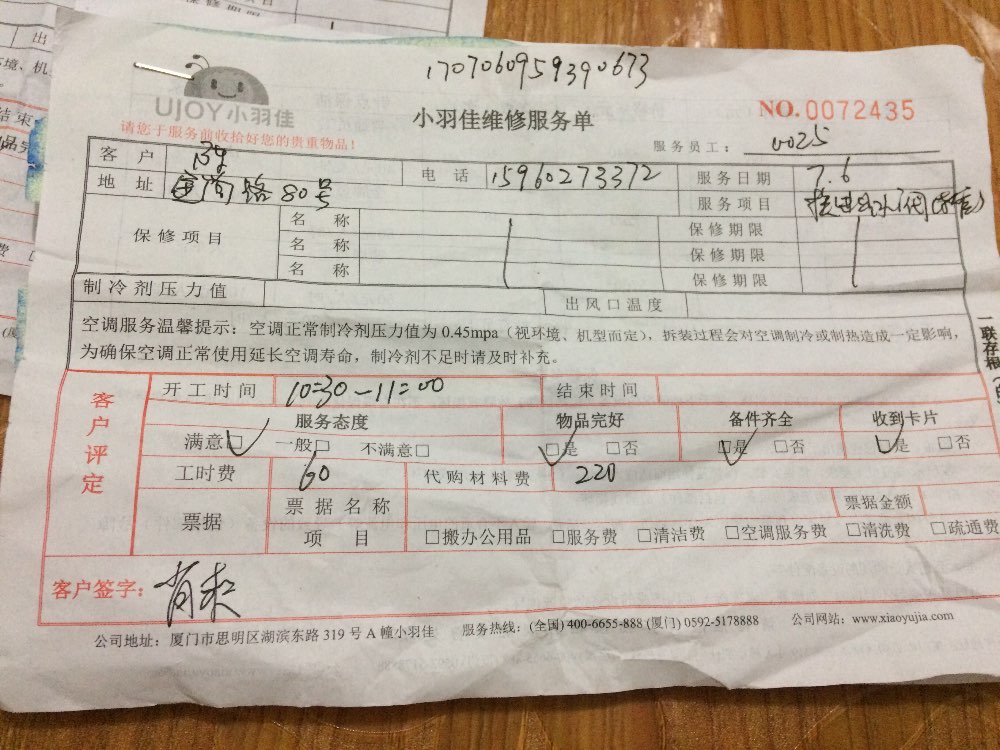 保修期限
出
境、机
结束
170706095939​0673
UJOY小羽佳
小羽佳维修服务单
NO.0072435
请您于服务前收拾好您的贵重物品!
服务员工: 0025
客户 电话 15960273372 服务日期 7.6
地址 路80号 服务项目
保修项目 名称 保修期限
名称 保修期限
名称 保修期限
制冷剂压力值 出风口温度
空调服务温馨提示:空调正常制冷剂压力值为0.45mpa(视环境、机型而定),拆装过程会对空调制冷或制热造成一定影响,
为确保空调正常使用延长空调寿命,制冷剂不足时请及时补充。
一联存根
客户评定
开工时间 10:30-11:00 结束时间
服务态度 物品完好 备件齐全 收到卡片
满意□ 一般□ 不满意□ □是 □否 □是 □否 □是 □否
工时费 60 代购材料费 220
票据 票据名称 票据金额
项目 □搬办公用品 □服务费 □清洁费 □空调服务费 □清洗费 □疏通费
客户签字:
公司地址:厦门市思明区湖滨东路319号A幢小羽佳 服务热线:(全国)400-6655-888(厦门)0592-5178888 公司网站:www.xiaoyujia.com